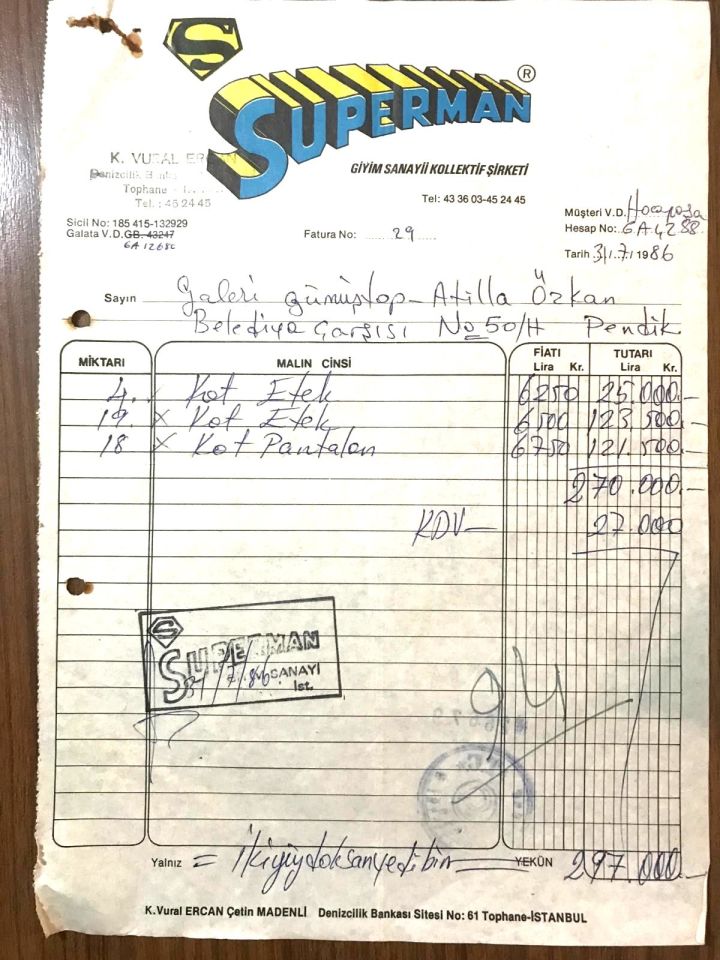 S
SUPERMAN ®
GİYİM SANAYİİ KOLLEKTİF ŞİRKETİ
K. VURAL ERCAN
Denizcilik
Tophane
Tel.: 45 24 45
Tel: 43 36 03-45 24 45
Sicil No: 185 415-132929
Galata V.D. GB. 43247
6A 12680
Fatura No: 29
Müşteri V.D. Hocapaşa
Hesap No: 6A4288
Tarih 31/7/1986
Sayın Galeri Gümüştop - Atilla Özkan
Belediye Çarşısı No 50/H Pendik
MİKTARI MALIN CİNSİ FİATI Lira Kr. TUTARI Lira Kr.
4 x Kot Etek 6250 25.000.-
19 x Kot Etek 6500 123.500.-
18 x Kot Pantalon 6750 121.500.-
270.000.-
KDV- 27.000
S
SUPERMAN
SANAYİ
31/7/86
İst.
Yalnız = İkiyüzdoksanyedibin YEKÜN 297.000.-
K.Vural ERCAN Çetin MADENLİ Denizcilik Bankası Sitesi No: 61 Tophane-İSTANBUL